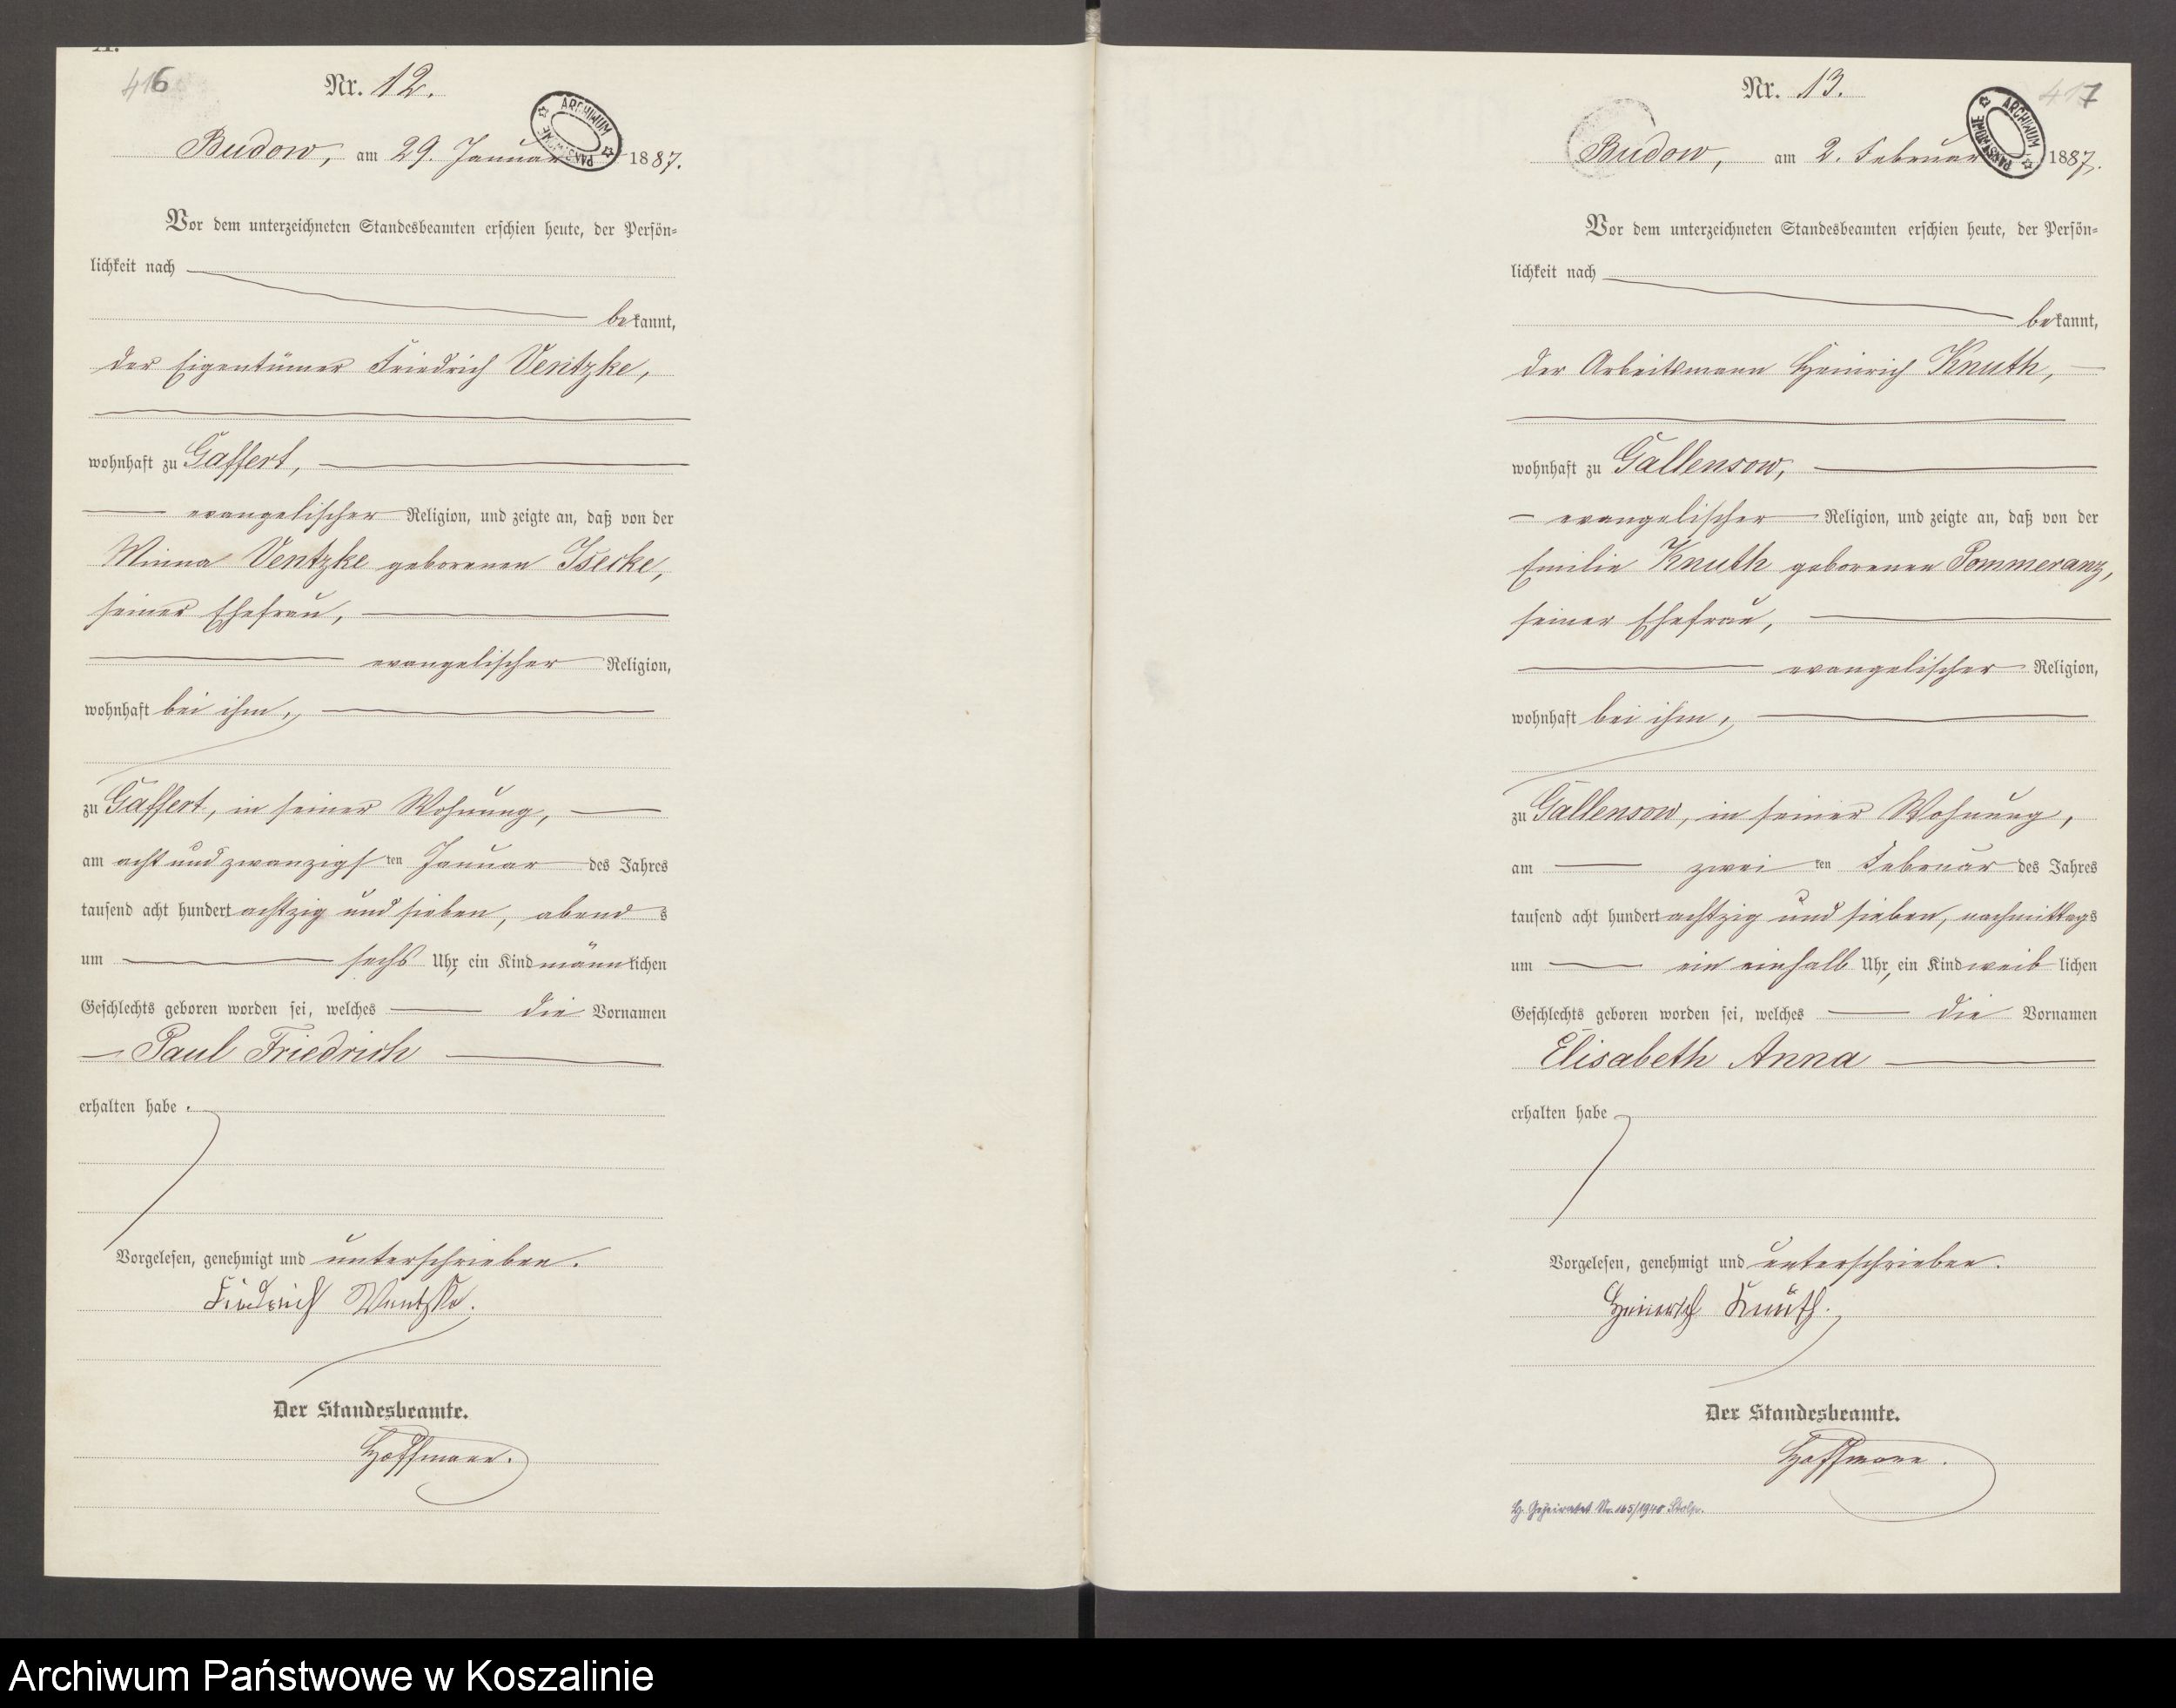 A.
416
Nr. 12.
ARCHIWUM PAŃSTWOWE
Budow, am 29. Januar 1887.
Vor dem unterzeichneten Standesbeamten erschien heute, der Persön-
lichkeit nach
bekannt,
der Eigentümer Friedrich Ventzke,
wohnhaft zu Gaffert,
evangelischer Religion, und zeigte an, daß von der
Minna Ventzke geborenen Isecke,
seiner Ehefrau,
evangelischer Religion,
wohnhaft bei ihm,
zu Gaffert, in seiner Wohnung,
am acht und zwanzigsten Januar des Jahres
tausend acht hundert achtzig und sieben, abends
um sechs Uhr, ein Kind männlichen
Geschlechts geboren worden sei, welches die Vornamen
Paul Friedrich
erhalten habe.
Vorgelesen, genehmigt und unterschrieben.
Friedrich Wentzke.
Der Standesbeamte.
Hoffmann.
417
Nr. 13.
ARCHIWUM PAŃSTWOWE
Budow, am 2. Februar 1887.
Vor dem unterzeichneten Standesbeamten erschien heute, der Persön-
lichkeit nach
bekannt,
der Arbeitsmann Heinrich Knuth,
wohnhaft zu Gallensow,
evangelischer Religion, und zeigte an, daß von der
Emilie Knuth geborenen Pommeranz,
seiner Ehefrau,
evangelischer Religion,
wohnhaft bei ihm,
zu Gallensow, in seiner Wohnung,
am zweiten Februar des Jahres
tausend acht hundert achtzig und sieben, nachmittags
um ein einhalb Uhr, ein Kind weiblichen
Geschlechts geboren worden sei, welches die Vornamen
Elisabeth Anna
erhalten habe
Vorgelesen, genehmigt und unterschrieben.
Heinrich Knuth.
Der Standesbeamte.
Hoffmann.
H. Geheiratet Nr. 165/1940 Stolp.
Archiwum Państwowe w Koszalinie